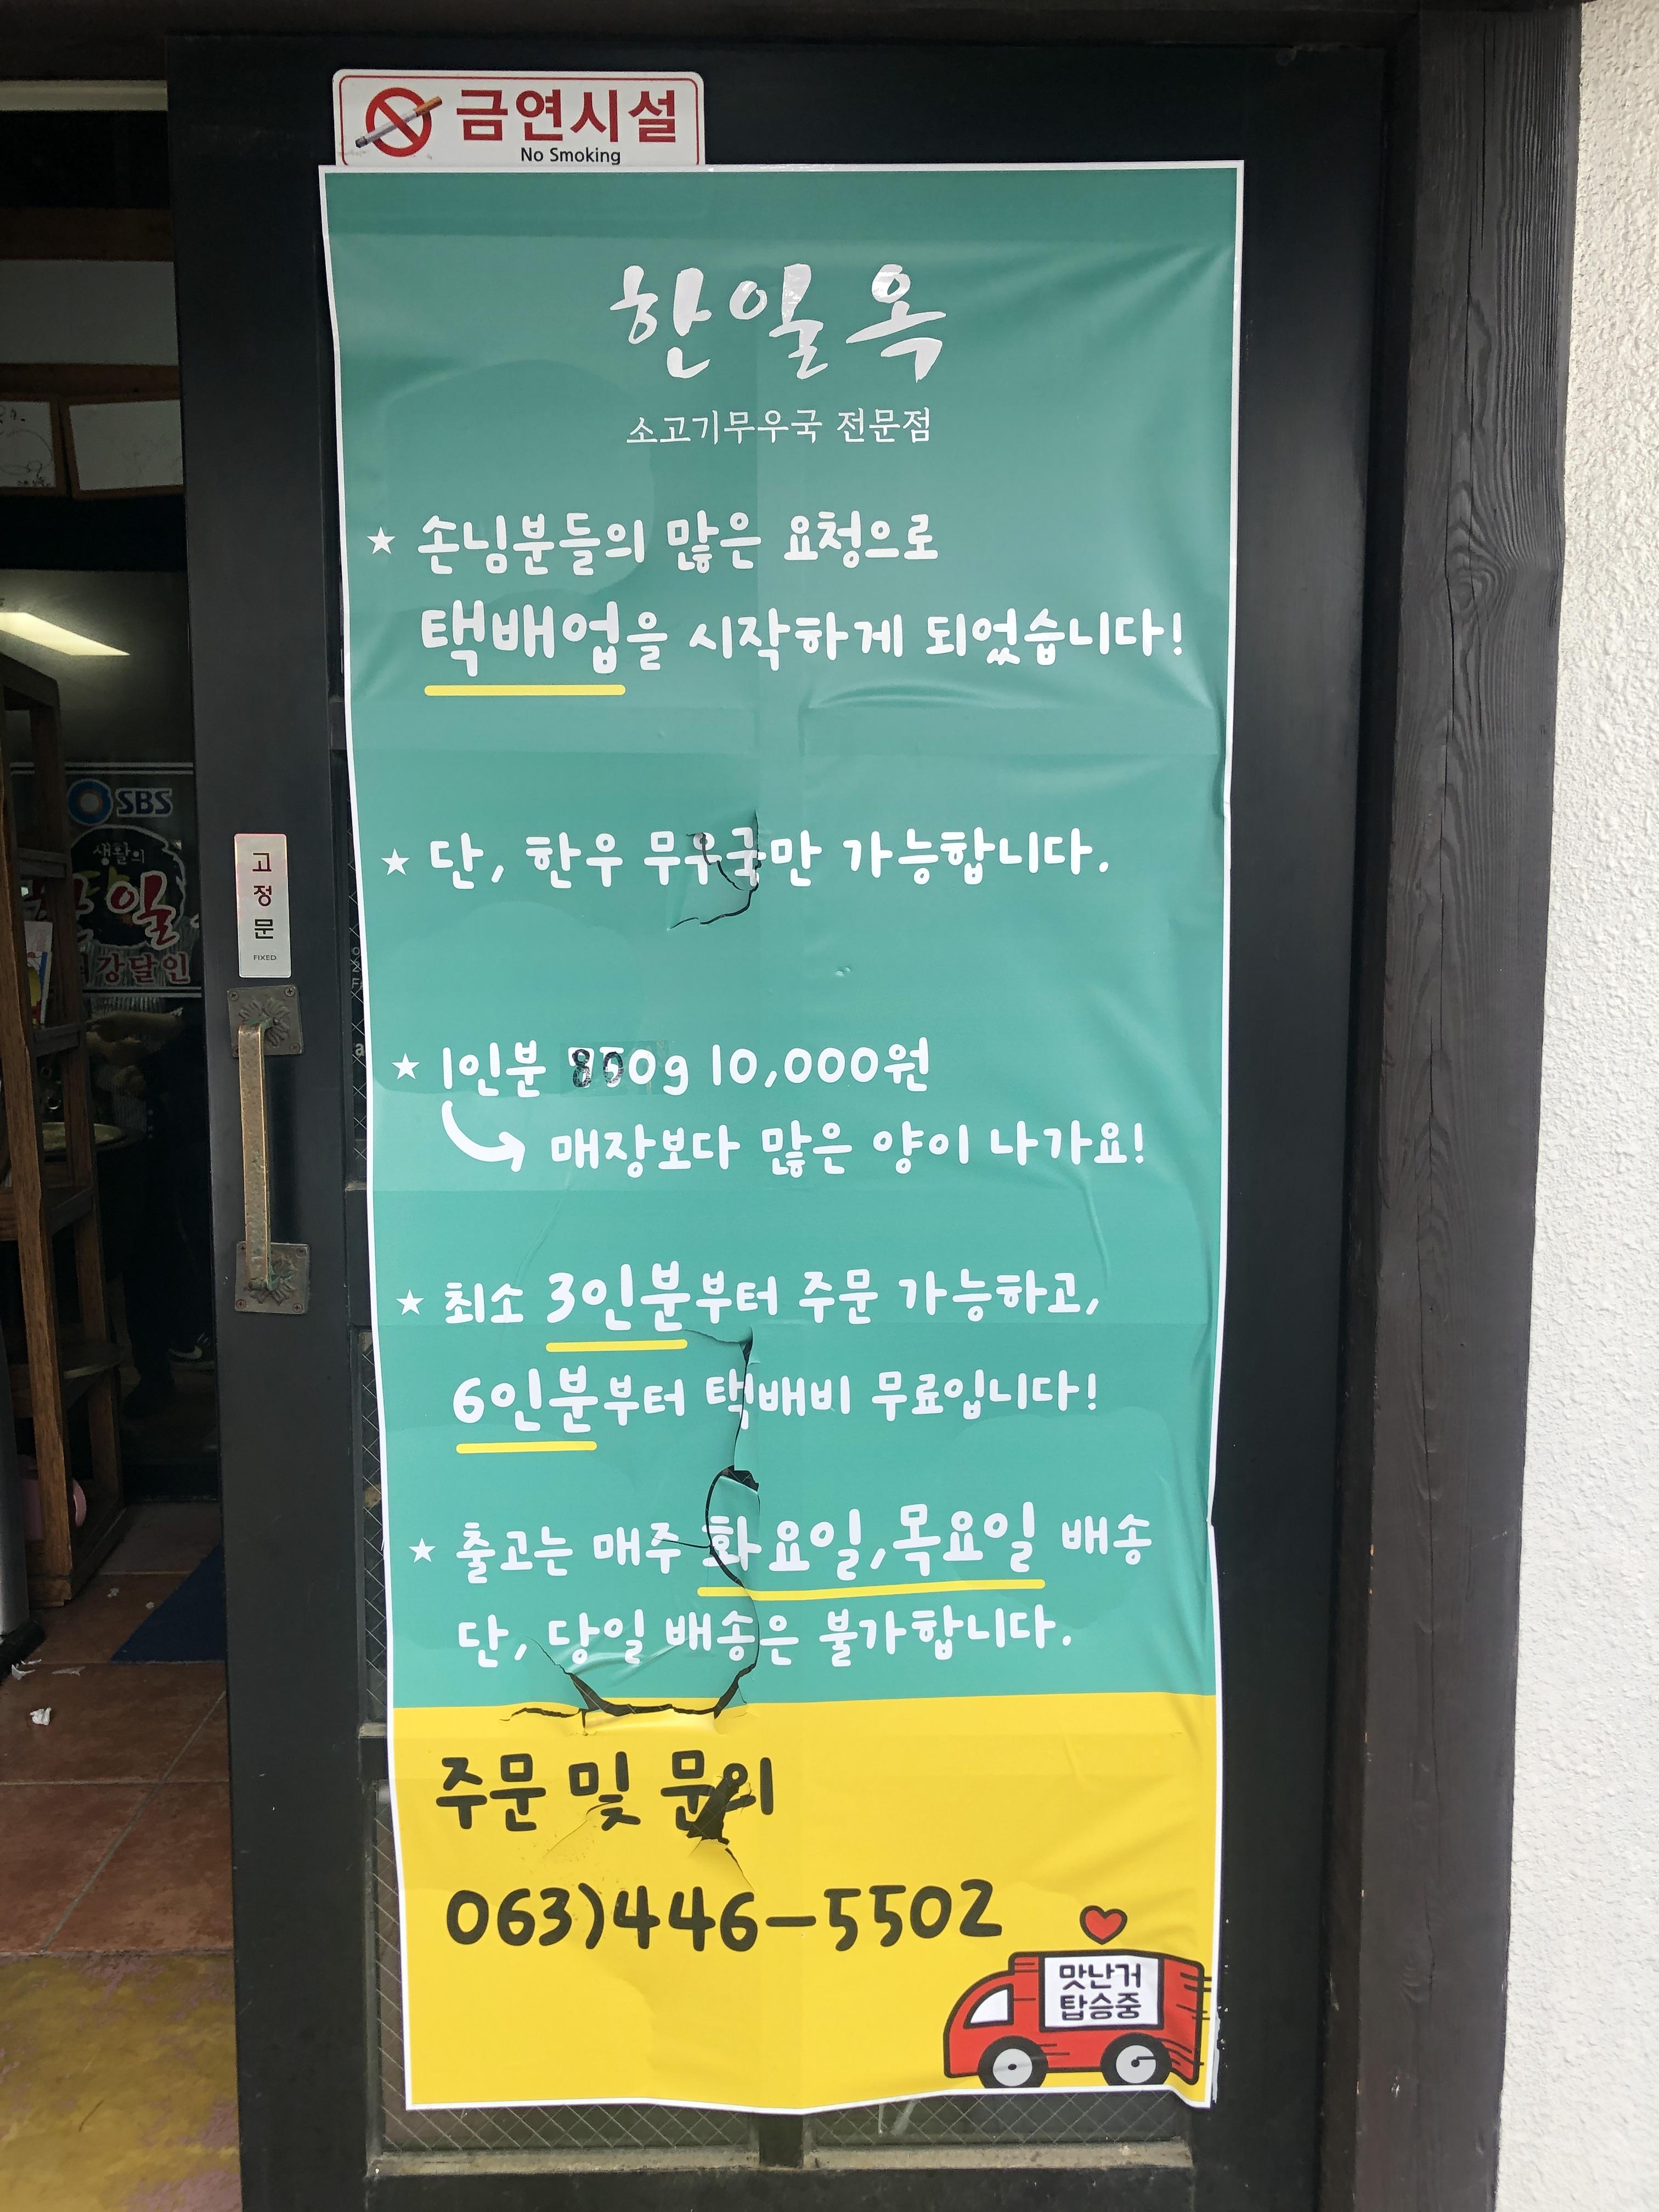 금연시설
No Smoking
한일옥
소고기무우국 전문점
★ 손님분들의 많은 요청으로
택배업을 시작하게 되었습니다!
★ 단, 한우 무우국만 가능합니다.
★ 1인분 800g 10,000원
매장보다 많은 양이 나가요!
★ 최소 3인분부터 주문 가능하고,
6인분부터 택배비 무료입니다!
★ 출고는 매주 화요일,목요일 배송
단, 당일 배송은 불가합니다.
주문 및 문의
063)446-5502
맛난거
탑승중
고정문
FIXED
SBS
생활의
일
강달인